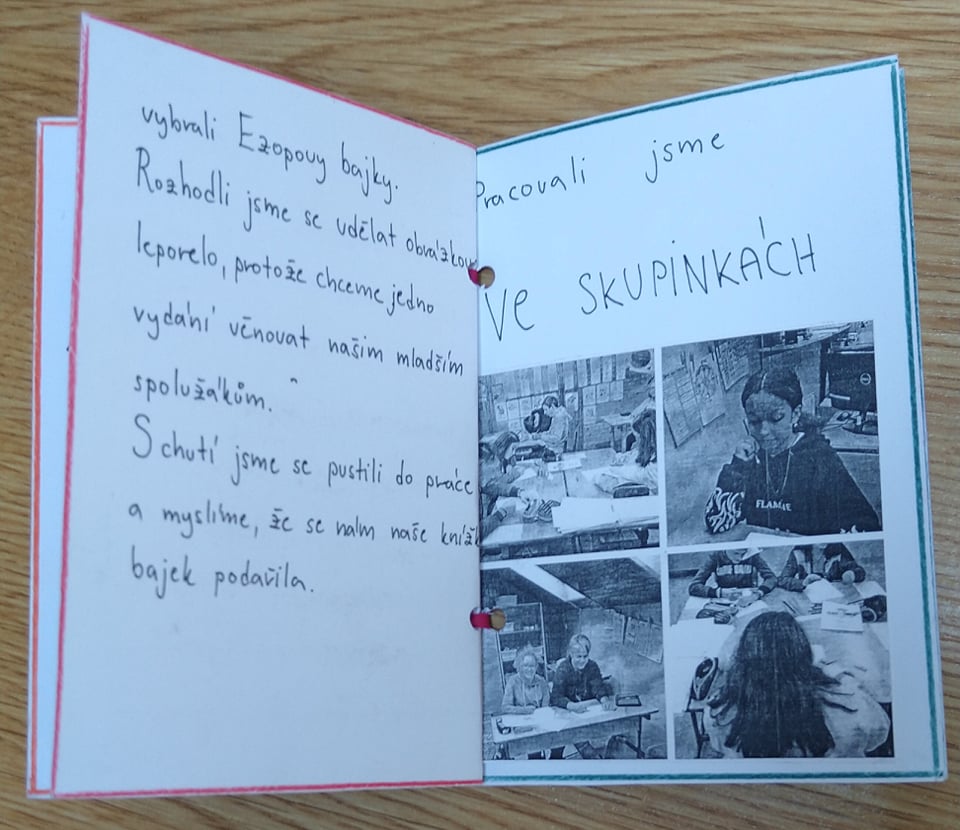 vybrali Ezopovy bajky.
Rozhodli jsme se udělat obrázkov
leporelo, protože chceme jedno
vydání věnovat našim mladším
spolužákům.
S chutí jsme se pustili do práce
a myslíme, že se nám naše kníž
bajek podařila.
Pracovali jsme
VE SKUPINKÁCH
FLAMIE